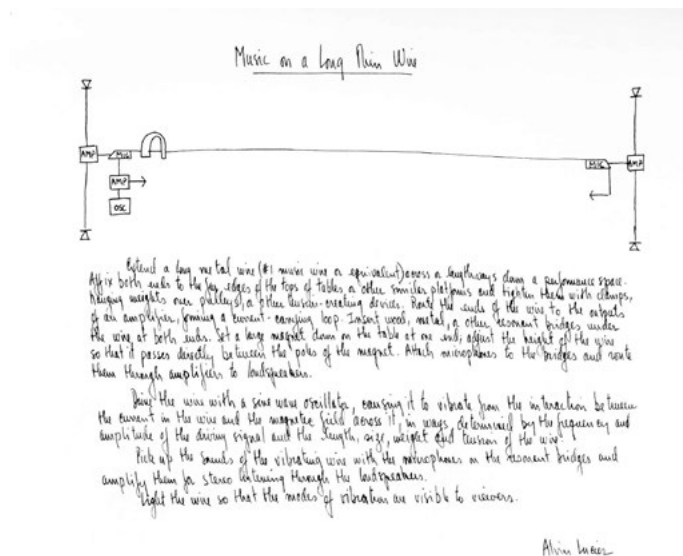 Music on a Long Thin Wire
AMP
MIC
AMP
OSC
MIC
AMP
Extend a long metal wire (#1 music wire or equivalent) across or lengthways down a performance space.
Affix both ends to the far edges of the tops of tables or other similar platforms and tighten them with clamps,
hanging weights over pulleys, or other tension-creating devices. Route the ends of the wire to the outputs
of an amplifier, forming a current-carrying loop. Insert wood, metal, or other resonant bridges under
the wire at both ends. Set a large magnet down on the table at one end; adjust the height of the wire
so that it passes directly between the poles of the magnet. Attach microphones to the bridges and route
them through amplifiers to loudspeakers.
Drive the wire with a sine wave oscillator, causing it to vibrate from the interaction between
the current in the wire and the magnetic field across it, in ways determined by the frequency and
amplitude of the driving signal and the length, size, weight and tension of the wire.
Pick up the sounds of the vibrating wire with the microphones on the resonant bridges and
amplify them for stereo listening through the loudspeakers.
Light the wire so that the modes of vibration are visible to viewers.
Alvin Lucier